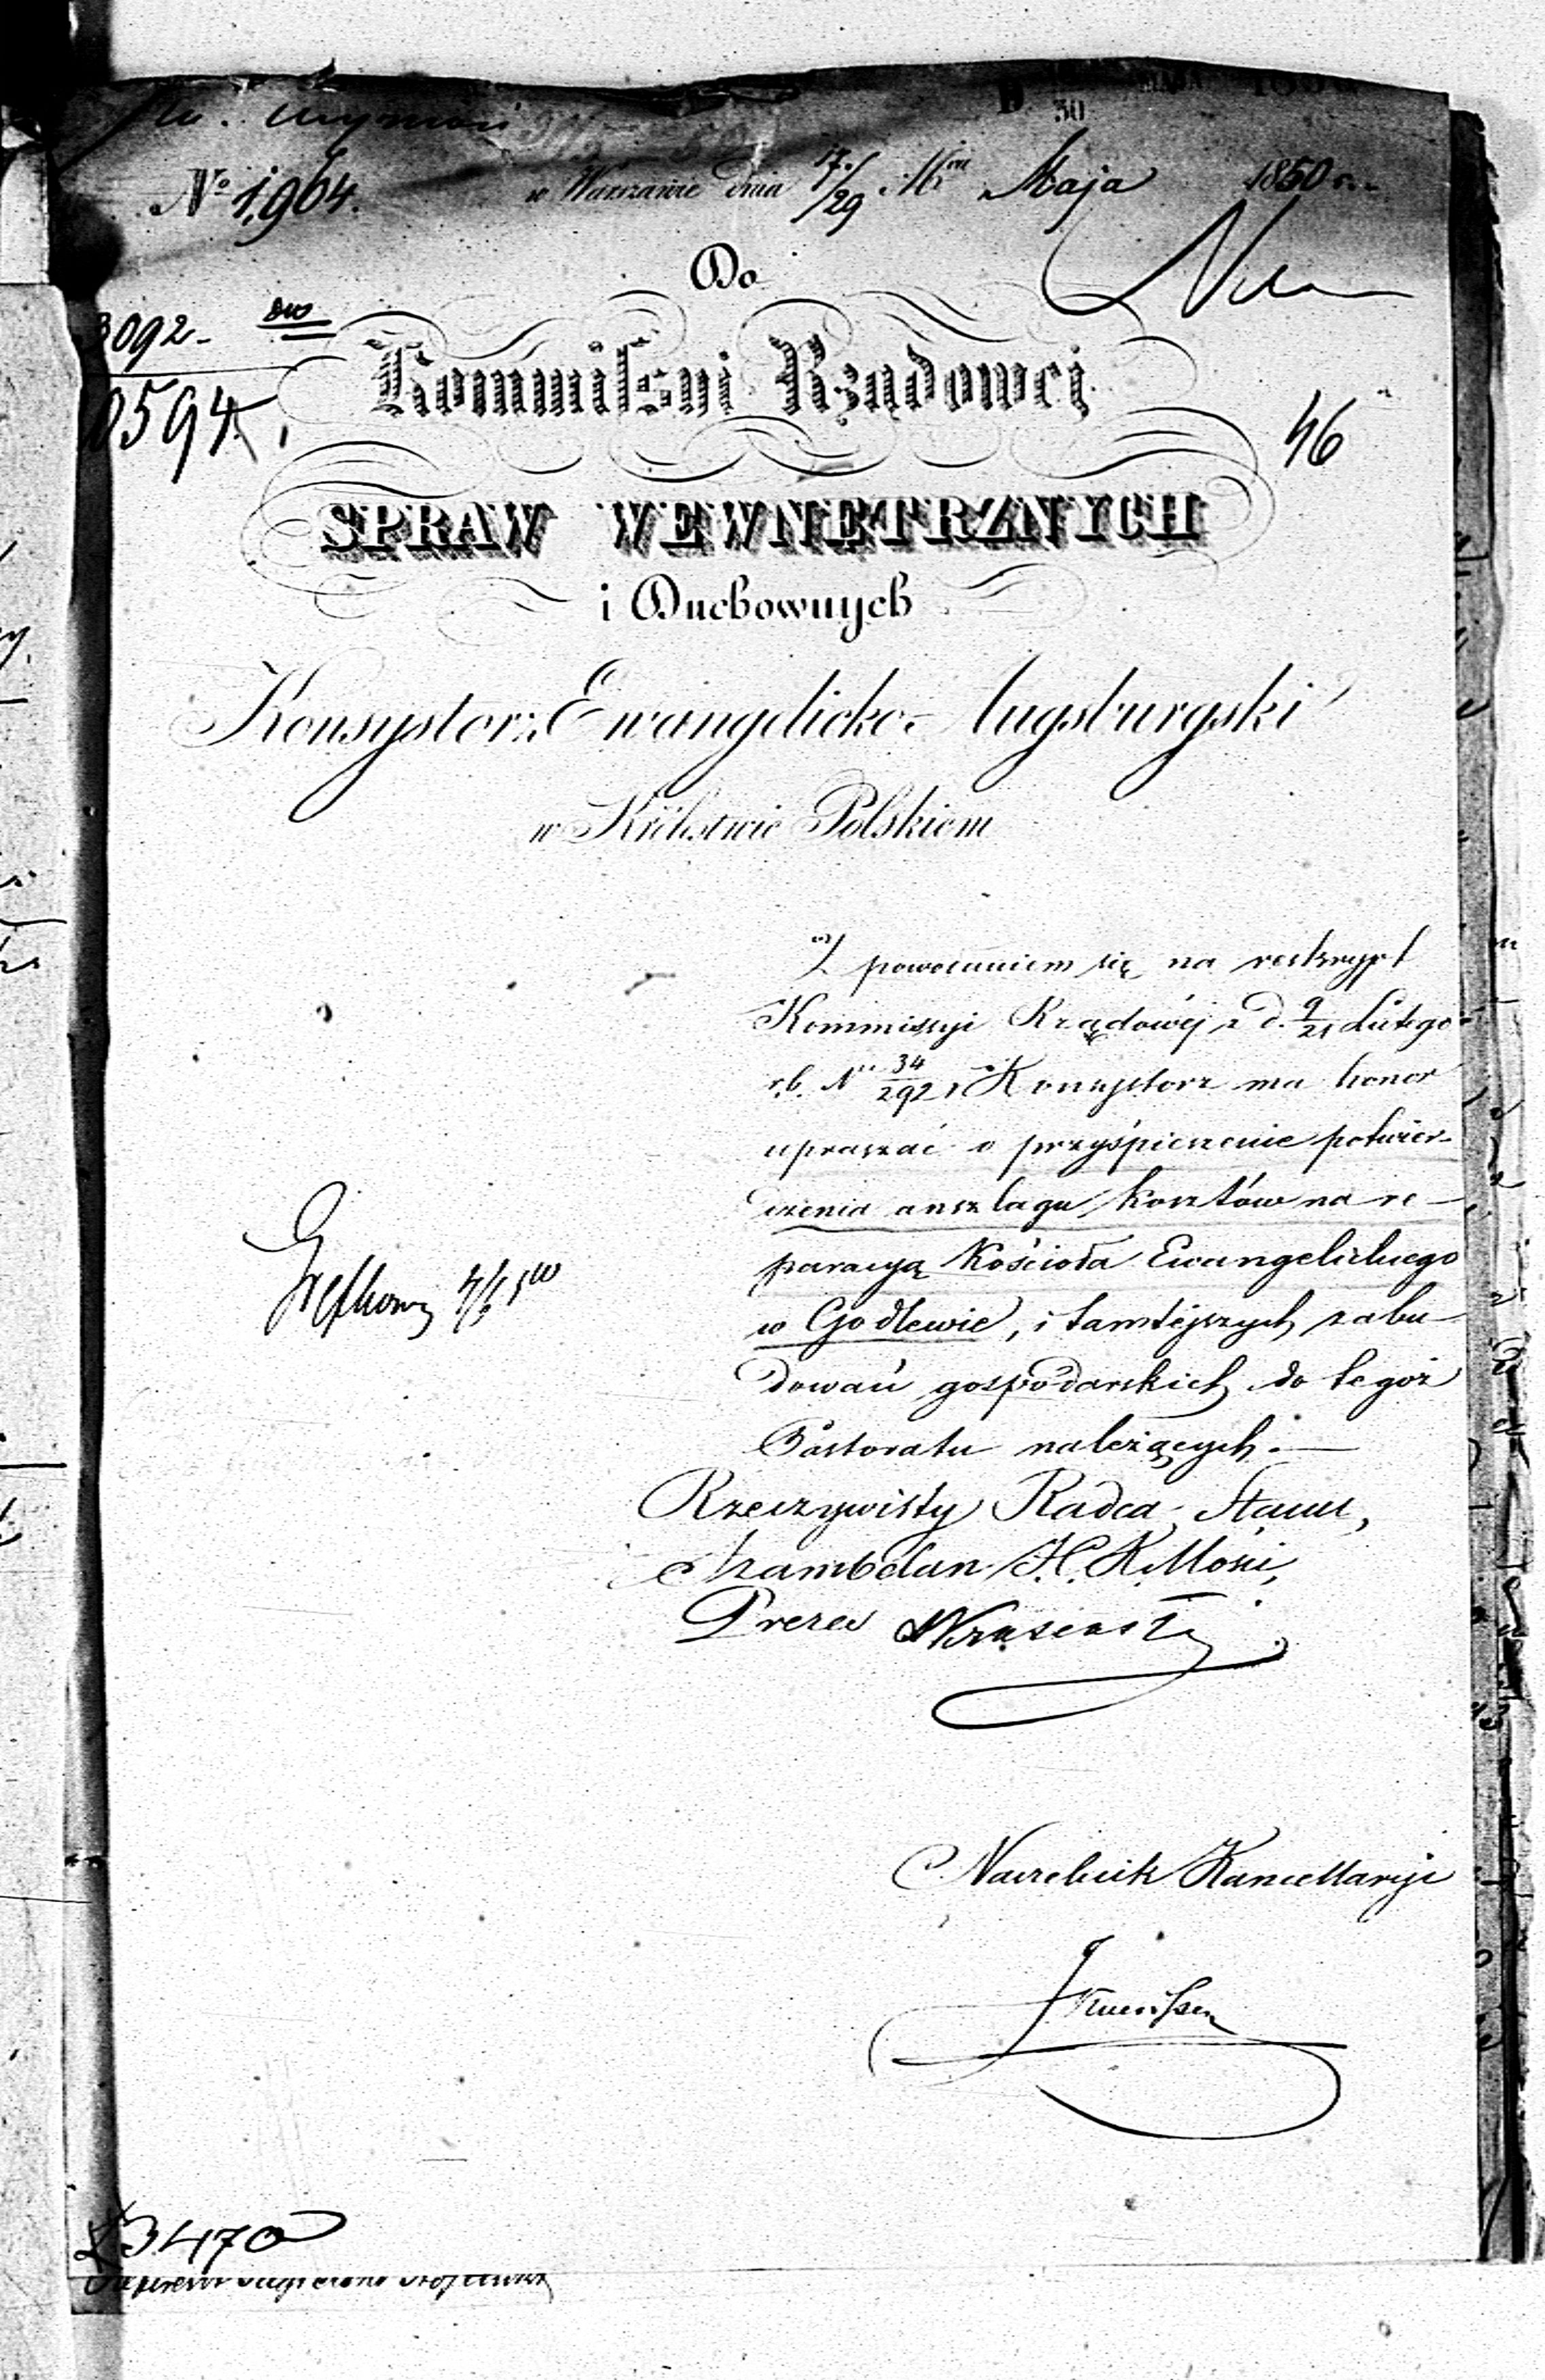 30
№ 1,964.
w Warszawie dnia 17/29 Mca Maja 1850 r.
Do
3092
0594
Kommissyi Rządowej
46
SPRAW WEWNĘTRZNYCH
i Duchownych
Konsystorz Ewangelicko-Augsburgski
w Królestwie Polskiem
Z powołaniem się na reskrypt
Kommissyi Rządowéj z d. 9/21 Lutego
r.b. No 34/292, Konsystorz ma honor
upraszać o przyśpieszenie potwier-
dzenia anszlagu kosztów na re-
paracyą Kościoła Ewangelickiego
w Godlewie, i tamtejszych zabu-
dowań gospodarskich do tegoż
Pastoratu należących.
Rzeczywisty Radca Stanu,
Szambelan
Prezes
Naczelnik Kancellaryi
23470